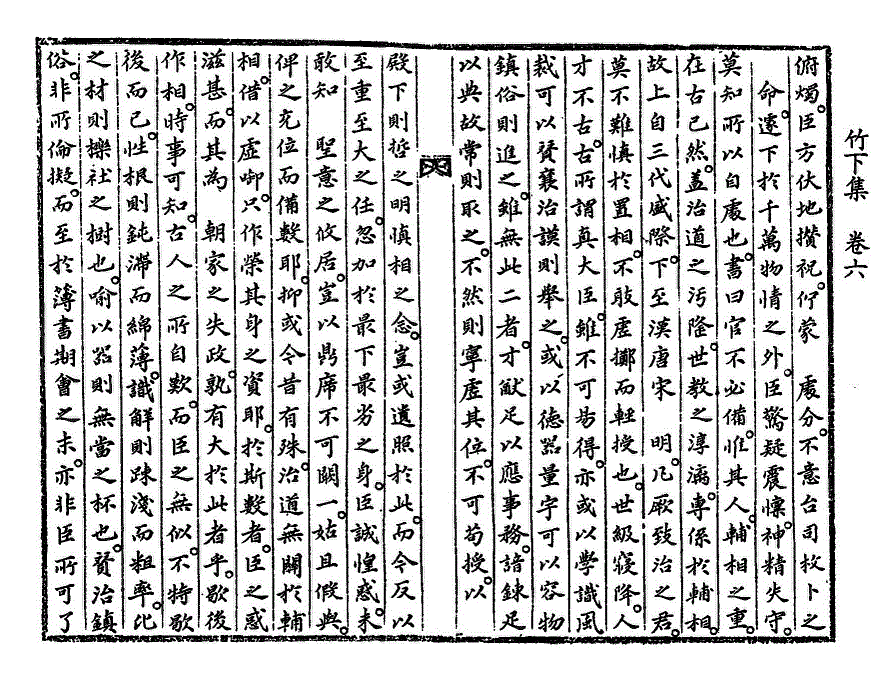 竹下集　卷六
俯燭。臣方伏地攅祝。佇蒙　處分。不意台司枚卜之
命。遽下於千萬物情之外。臣驚疑震懍。神精失守。
莫知所以自處也。書曰官不必備。惟其人。輔相之重。
在古已然。盖治道之汚隆。世教之淳漓。專係於輔相。
故上自三代盛際。下至漢唐宋　明。凡厥致治之君。
莫不難愼於置相。不敢虛擲而輕授也。世級寖降。人
才不古。古所謂眞大臣。雖不可易得。亦或以學識風
裁可以贊襄治謨則擧之。或以德器量宇可以容物
鎭俗則進之。雖無此二者。才猷足以應事務。諳鍊足
以典故常則取之。不然則寧虛其位。不可苟授。以
殿下則哲之明愼相之念。豈或遺照於此。而令反以
至重至大之任。忽加於最下最劣之身。臣誠惶惑。未
敢知　聖意之攸居。豈以鼎席不可闕一。姑且假與。
俾之充位而備數耶。抑或令昔有殊。治道無關於輔
相。借以虛啣。只作榮其身之資耶。於斯數者。臣之惑
滋甚。而其爲　朝家之失政。孰有大於此者乎。歇後
作相。時事可知。古人之所自歎。而臣之無似。不特歇
後而已。性根則鈍滯而綿薄。識解則踈淺而粗率。比
之材則櫟社之樹也。喩以器則無當之杯也。贊治鎭
俗。非所倫擬。而至於簿書期會之末。亦非臣所可了